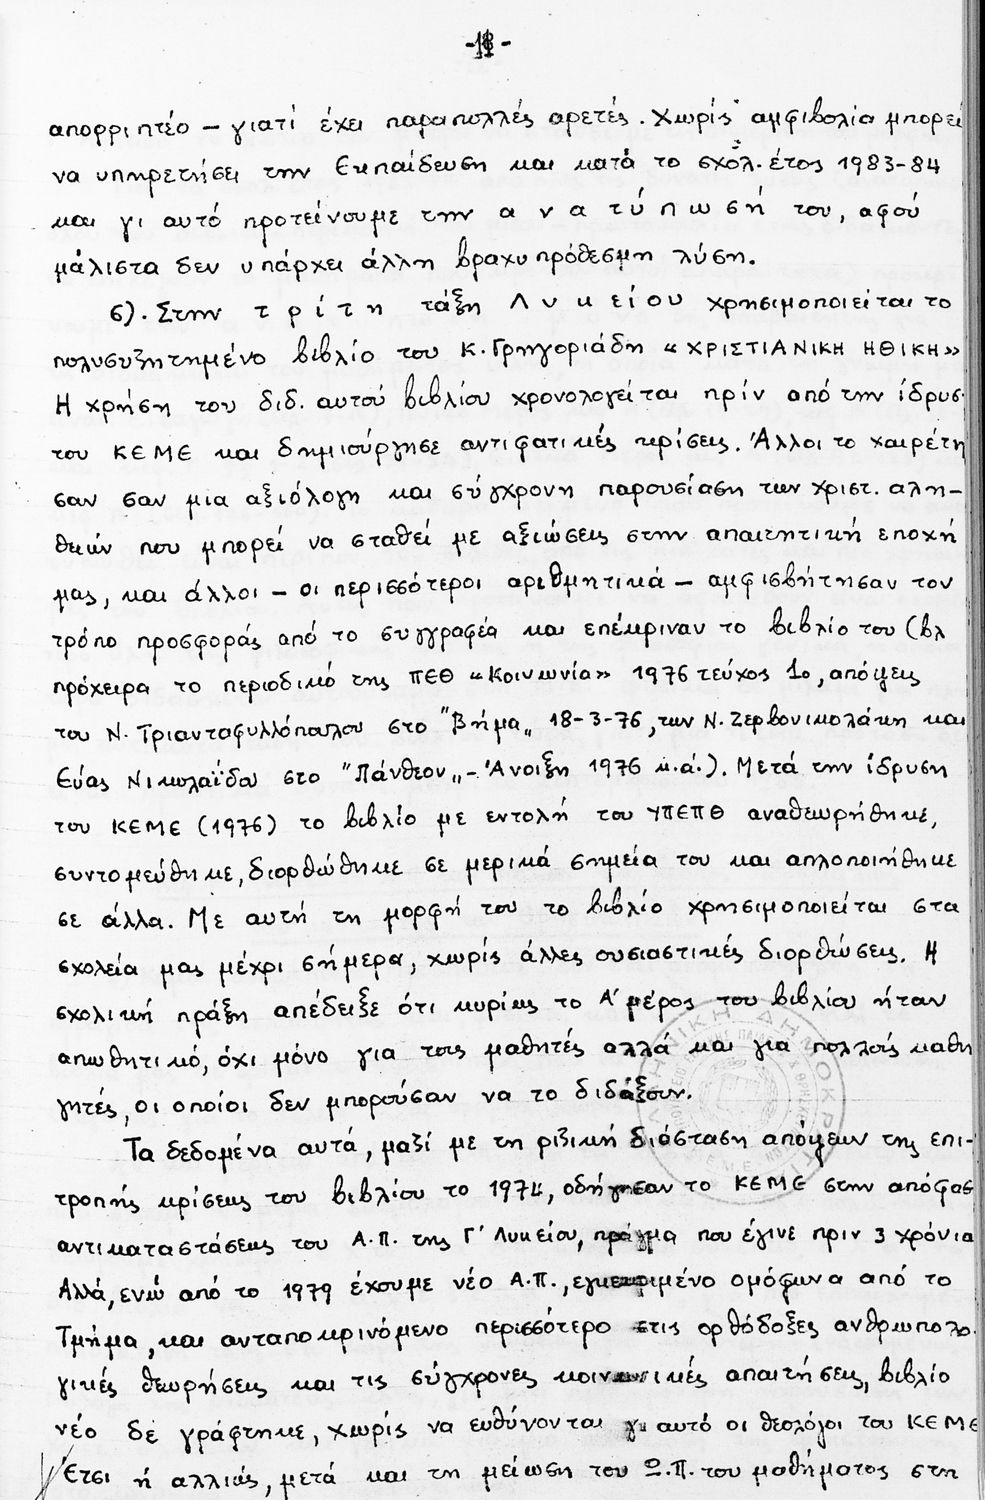 απορριπτέο – γιατί έχει παραπολλές αρετές. Χωρίς αμφιβολία μπορεί
να υπηρετήσει την Εκπαίδευση και κατά το σχολ. έτος 1983-84
και γι αυτό προτείνουμε την α ν α τ ύ π ω σ ή του, αφού
μάλιστα δεν υπάρχει άλλη βραχυπρόθεσμη λύση.
6). Στην τ ρ ί τ η τάξη Λ υ κ ε ί ο υ χρησιμοποιείται το
πολυσυζητημένο βιβλίο του Κ. Γρηγοριάδη «ΧΡΙΣΤΙΑΝΙΚΗ ΗΘΙΚΗ»
Η χρήση του διδ. αυτού βιβλίου χρονολογείται πρίν από την ίδρυσ
του ΚΕΜΕ και δημιούργησε αντιφατικές κρίσεις. Άλλοι το χαιρέτη
σαν σαν μια αξιόλογη και σύγχρονη παρουσίαση των χριστ. αλη-
θειών που μπορεί να σταθεί με αξιώσεις στην απαιτητική εποχή
μας, και άλλοι – οι περισσότεροι αριθμητικά – αμφισβήτησαν τον
τρόπο προσφοράς από το συγγραφέα και επέκριναν το βιβλίο του (βλ
πρόχειρα το περιοδικό της ΠΕΘ «Κοινωνία» 1976 τεύχος 1ο, απόψεις
του Ν. Τριανταφυλλόπουλου στο "Βήμα„ 18-3-76, των Ν. Ζερβονικολάκη και
Εύας Νικολαΐδου στο "Πάνθεον„ - Άνοιξη 1976 κ.ά.). Μετά την ίδρυση
του ΚΕΜΕ (1976) το βιβλίο με εντολή του ΥΠΕΠΘ αναθεωρήθηκε,
συντομεύθηκε, διορθώθηκε σε μερικά σημεία του και απλοποιήθηκε
σε άλλα. Με αυτή τη μορφή του το βιβλίο χρησιμοποιείται στα
σχολεία μας μέχρι σήμερα, χωρίς άλλες ουσιαστικές διορθώσεις. Η
σχολική πράξη απέδειξε ότι κυρίως το Α' μέρος του βιβλίου ήταν
απωθητικό, όχι μόνο για τους μαθητές αλλά και για πολλούς καθη
γητές, οι οποίοι δεν μπορούσαν να το διδάξουν.
Τα δεδομένα αυτά, μαζί με τη ριζική διάσταση απόψεων της επι-
τροπής κρίσεως του βιβλίου το 1974, οδήγησαν το ΚΕΜΕ στην απόφασ
αντικαταστάσεως του Α.Π. της Γ' Λυκείου, πράγμα που έγινε πριν 3 χρόνια
Αλλά, ενώ από το 1979 έχουμε νέο Α.Π., εγκεκριμένο ομόφωνα από το
Τμήμα, και ανταποκρινόμενο περισσότερο στις ορθόδοξες ανθρωπολο
γικές θεωρήσεις και τις σύγχρονες κοινωνικές απαιτήσεις, βιβλίο
νέο δε γράφτηκε, χωρίς να ευθύνονται γι αυτό οι θεολόγοι του ΚΕΜΕ
Έτσι ή αλλιώς, μετά και τη μείωση του Ω.Π. του μαθήματος στη